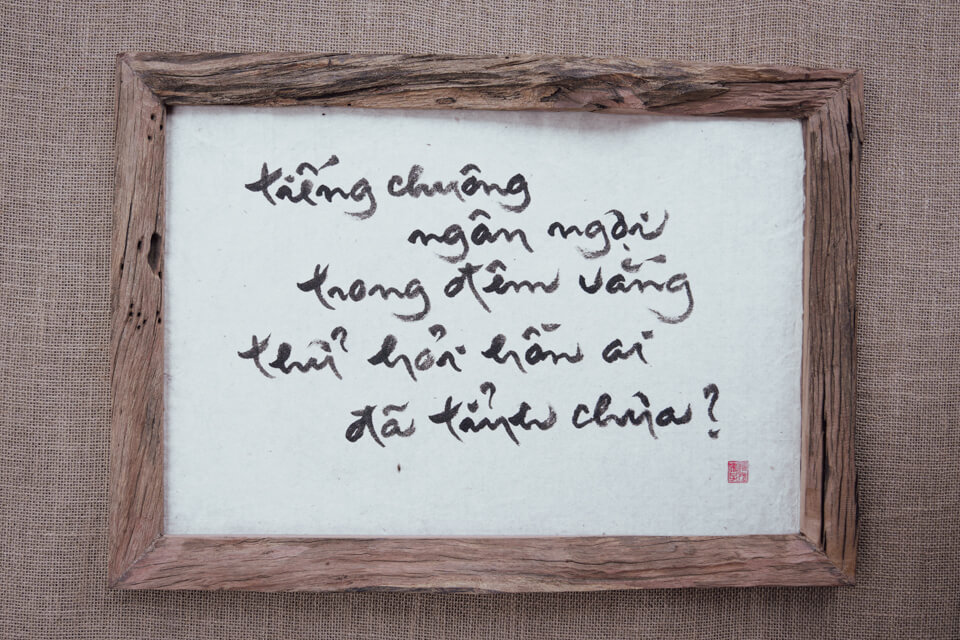 tiếng chuông
ngân ngợi
trong đêm vắng
thử hỏi hồn ai
đã tỉnh chưa?